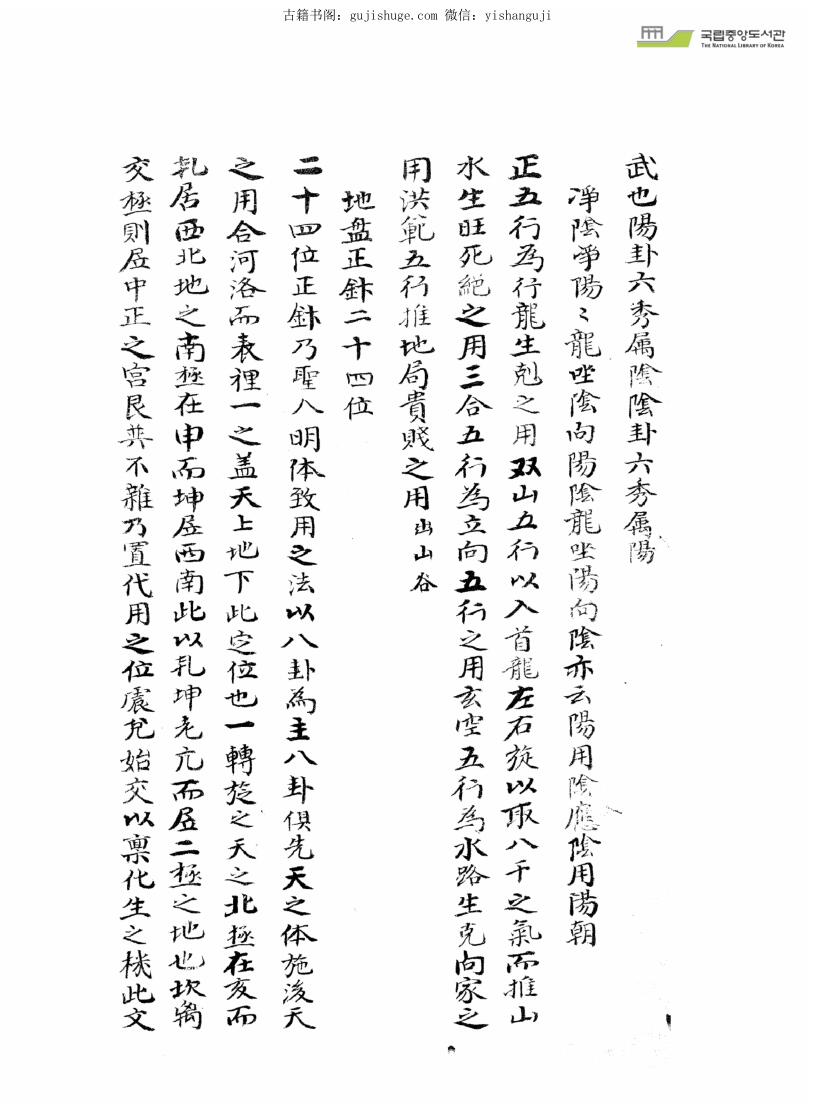 古籍书阁：gujishuge.com 微信：yishanguji
국립중앙도서관
THE NATIONAL LIBRARY OF KOREA
武也陽卦六秀属陰陰卦六秀属陽
凈陰凈陽〻龍坐陰向陽陰龍坐陽向陰亦云陽用陰應陰用陽朝
正五行為行龍生剋之用双山五行以入首龍左右旋以取八干之氣而推山
水生旺死絕之用三合五行為立向五行之用玄空五行為水路生克向家之
用洪範五行推地局貴賤之用出山谷
地盘正針二十四位
二十四位正針乃聖人明体致用之法以八卦為主八卦俱先天之体施後天
之用合河洛而表裡一之盖天上地下此定位也一轉旋之天之北極在亥而
乹居西北地之南極在申而坤居西南此以乹坤老亢而居二極之地也坎离
交極則居中正之宫艮巽不雜乃置代用之位震兊始交以禀化生之機此文